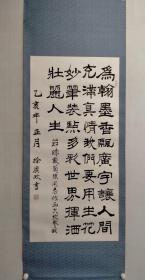 為翰墨香飄廣宇讓人間
充滿真情我們要用生花
妙筆裝點多彩世界揮洒
壯麗人生
乙亥年正月 徐書